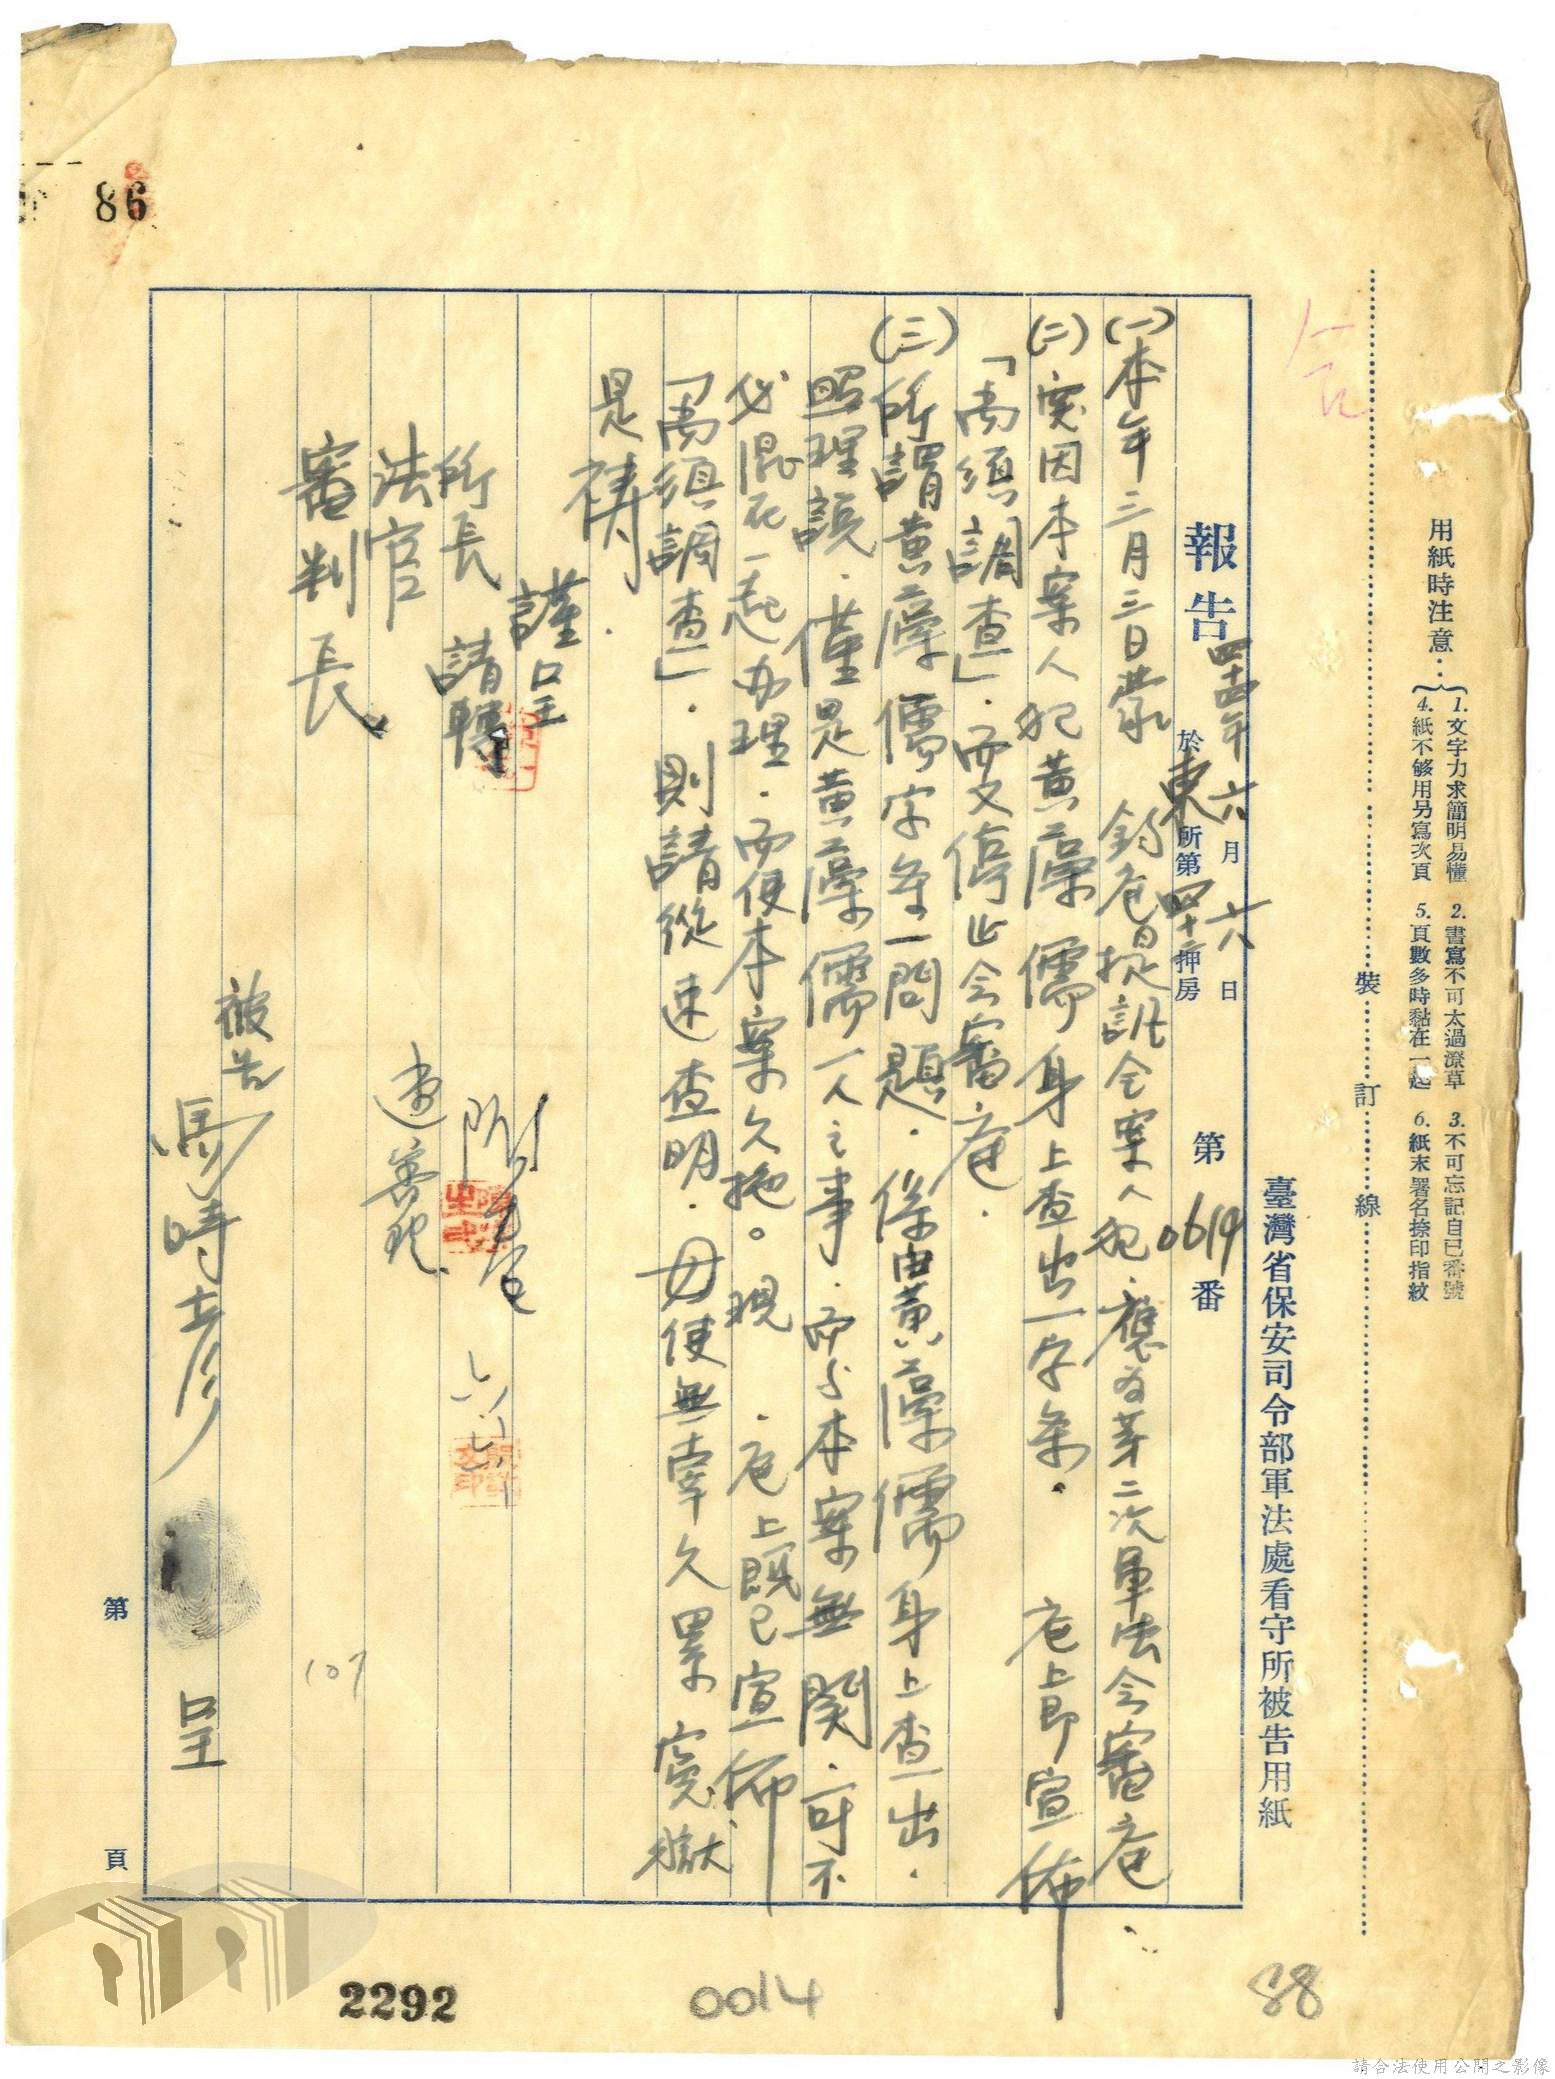 用紙時注意：
1. 文字力求簡明易懂 2. 書寫不可太過潦草 3. 不可忘記自己番號
4. 紙不够用另寫次頁 5. 頁數多時黏在一起 6. 紙末署名捺印指紋
裝 訂 線
臺灣省保安司令部軍法處看守所被告用紙
報告 四十四年六月六日 第0619番
於東所第四十二押房
(一)本年三月三日蒙 鈞庭提訊全案人犯．應為第二次軍法會審庭．
(二)突因本案人犯黃藻儒身上查出一字条． 庭上即宣佈
「尚須調查」．而又停止會審庭．
(三)所謂黃藻儒字条一問題．係由黃藻儒身上查出．
照理說．僅是黃藻儒一人之事．而与本案無關．可不
必混在一起办理．而使本案久拖。現 ．庭上既已宣佈
「尚須調查」．則請從速查明．毋使無辜久累冤獄
是禱．
謹呈
所長 請轉
法官
審判長
六六
107
被告 馬時彥 呈
第 頁
86
2292
0014
88
請合法使用公開之影像